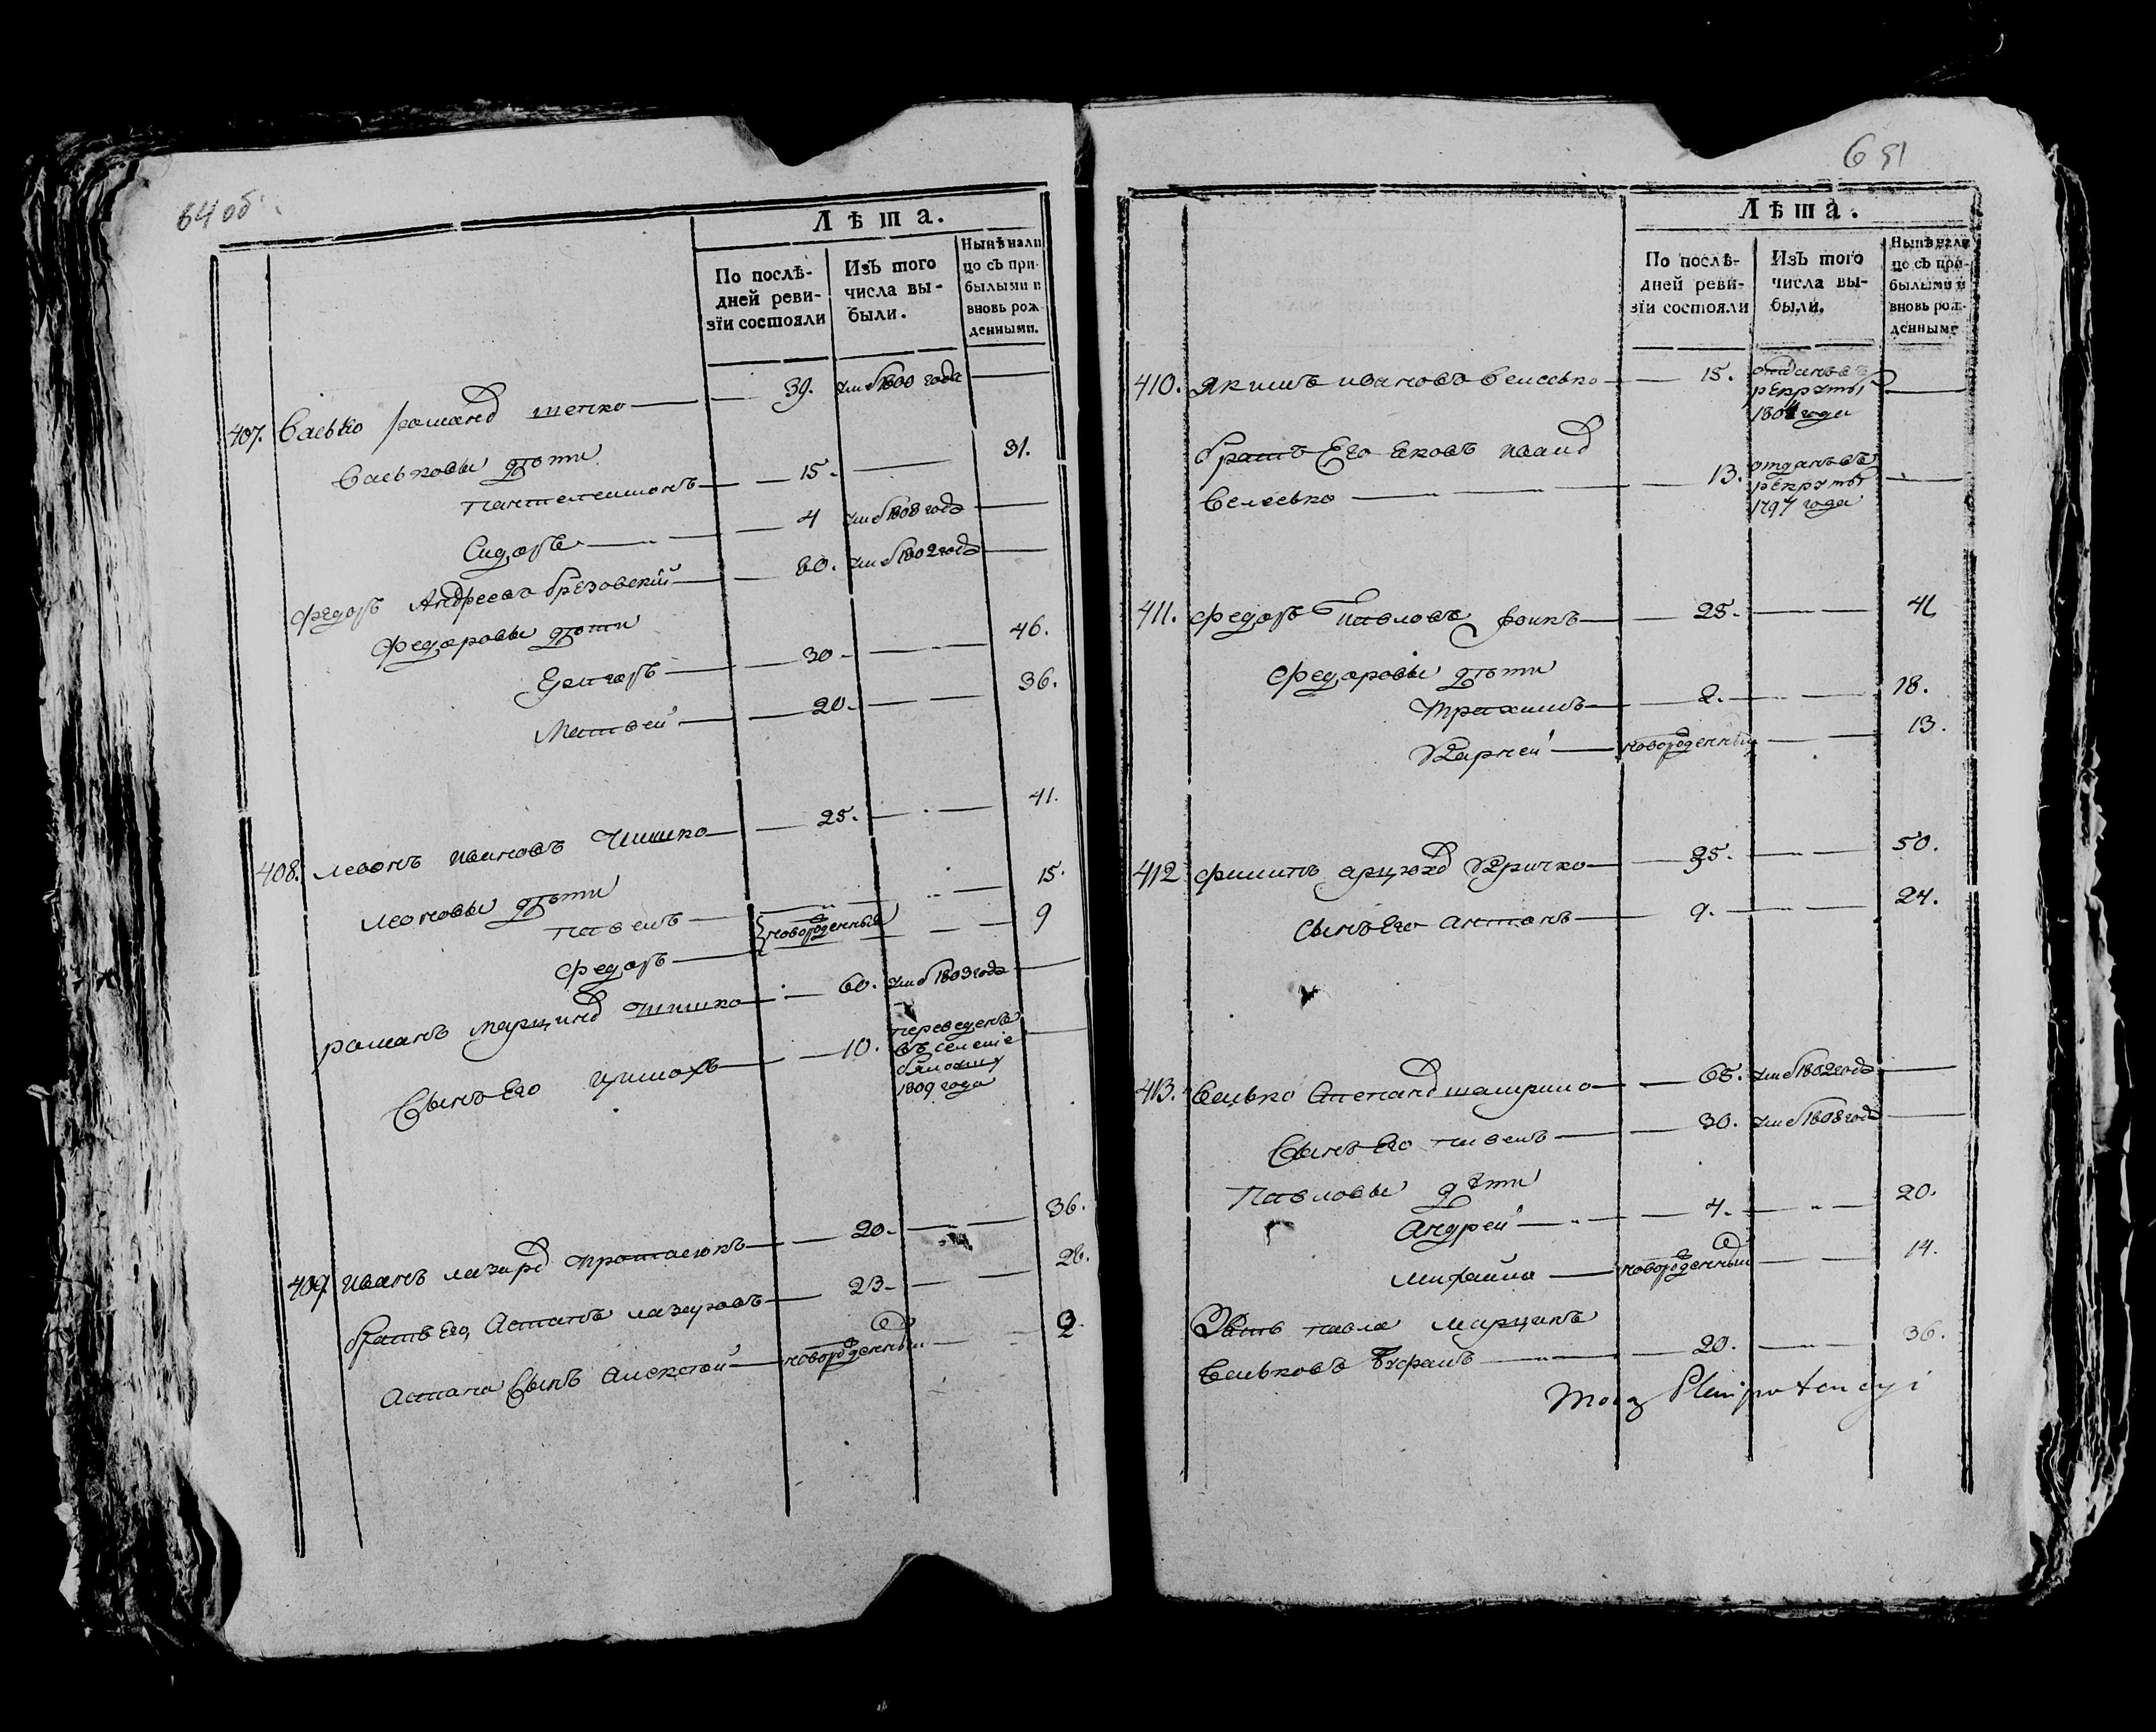 64 об.
Лѣта.
По послѣ-
дней реви-
зіи состояли
Изъ того
числа вы-
были.
Нынѣ нали
цо съ при-
былыми и
вновь рож
денными.
407. Васько Романо — 39. 1800 года —
Васьковы дѣти
Пантелеимонъ — 15. — 31.
Сидоръ — 4 1808 года —
Федоръ Андреевъ Брезовскій — 60. 1802 года —
Федоровы дѣти
Григоръ — 30 — 46.
Матвей — 20. — 36.
408. Левонъ Ивановъ Чишко — 25. — 41.
Леоновы дѣти
Павелъ — 15.
новорожденный
Федоръ — 9
Романъ Марцино Чишко — 60. 1803 года —
Сынъ Его — 10. переведенъ
въ селеніе
1809 года
409. Иванъ Лазаро Протасюкъ — 20. — 36.
братъ Его, Астапъ Лазаровъ — 23. — 26.
Астапа Сынъ Алексей — новорожденный — 2
651
Лѣта.
По послѣ-
дней реви-
зіи состояли
Изъ того
числа вы-
были.
Нынѣ нали
цо съ при-
былыми и
вновь рож-
денными
410. Якимъ Ивановъ Велесько — 15. отданъ въ
рекруты
года
братъ Его Яковъ Ивано
Велесько — 13. отданъ въ
рекруты
1797 года
411. Федоръ Павловъ — 25. — 41
Федоровы дѣти
Трахимъ — 2. — 18.
Карней — новорожденный — 13.
412 Филипъ Кричко — 35. — 50.
Сынъ Его Антонъ — 9. — 24.
413. Велько Степано — 65. 1802 года —
Сынъ Его Павелъ — 30. 1808 года —
Павловы дѣти
Андрей — 4. — 20.
Михайла — новорожденный — 14.
Зять Павла Марцинъ
Вельковъ — 20. — 36.
Mocą Plenipotencyi